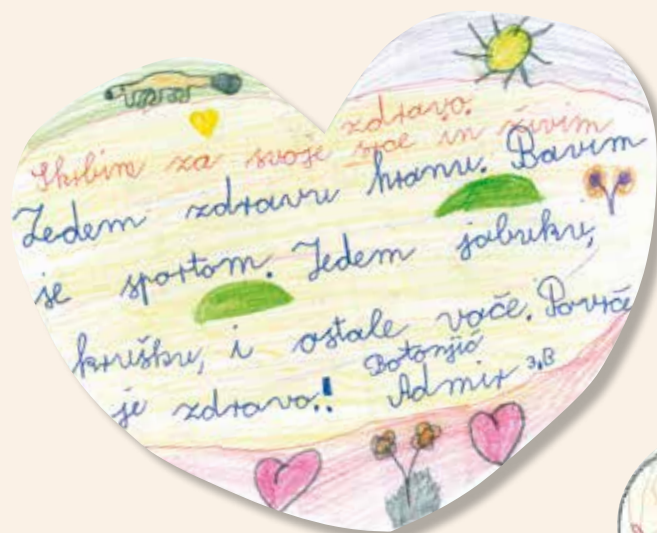 Skrbim za svoje srce in živim zdravo.
Jedem zdravu hranu. Bavim
se sportom. Jedem jabuku,
krušku, i ostale voće. Povrće
je zdravo!
Botonjić
Admir 3.B